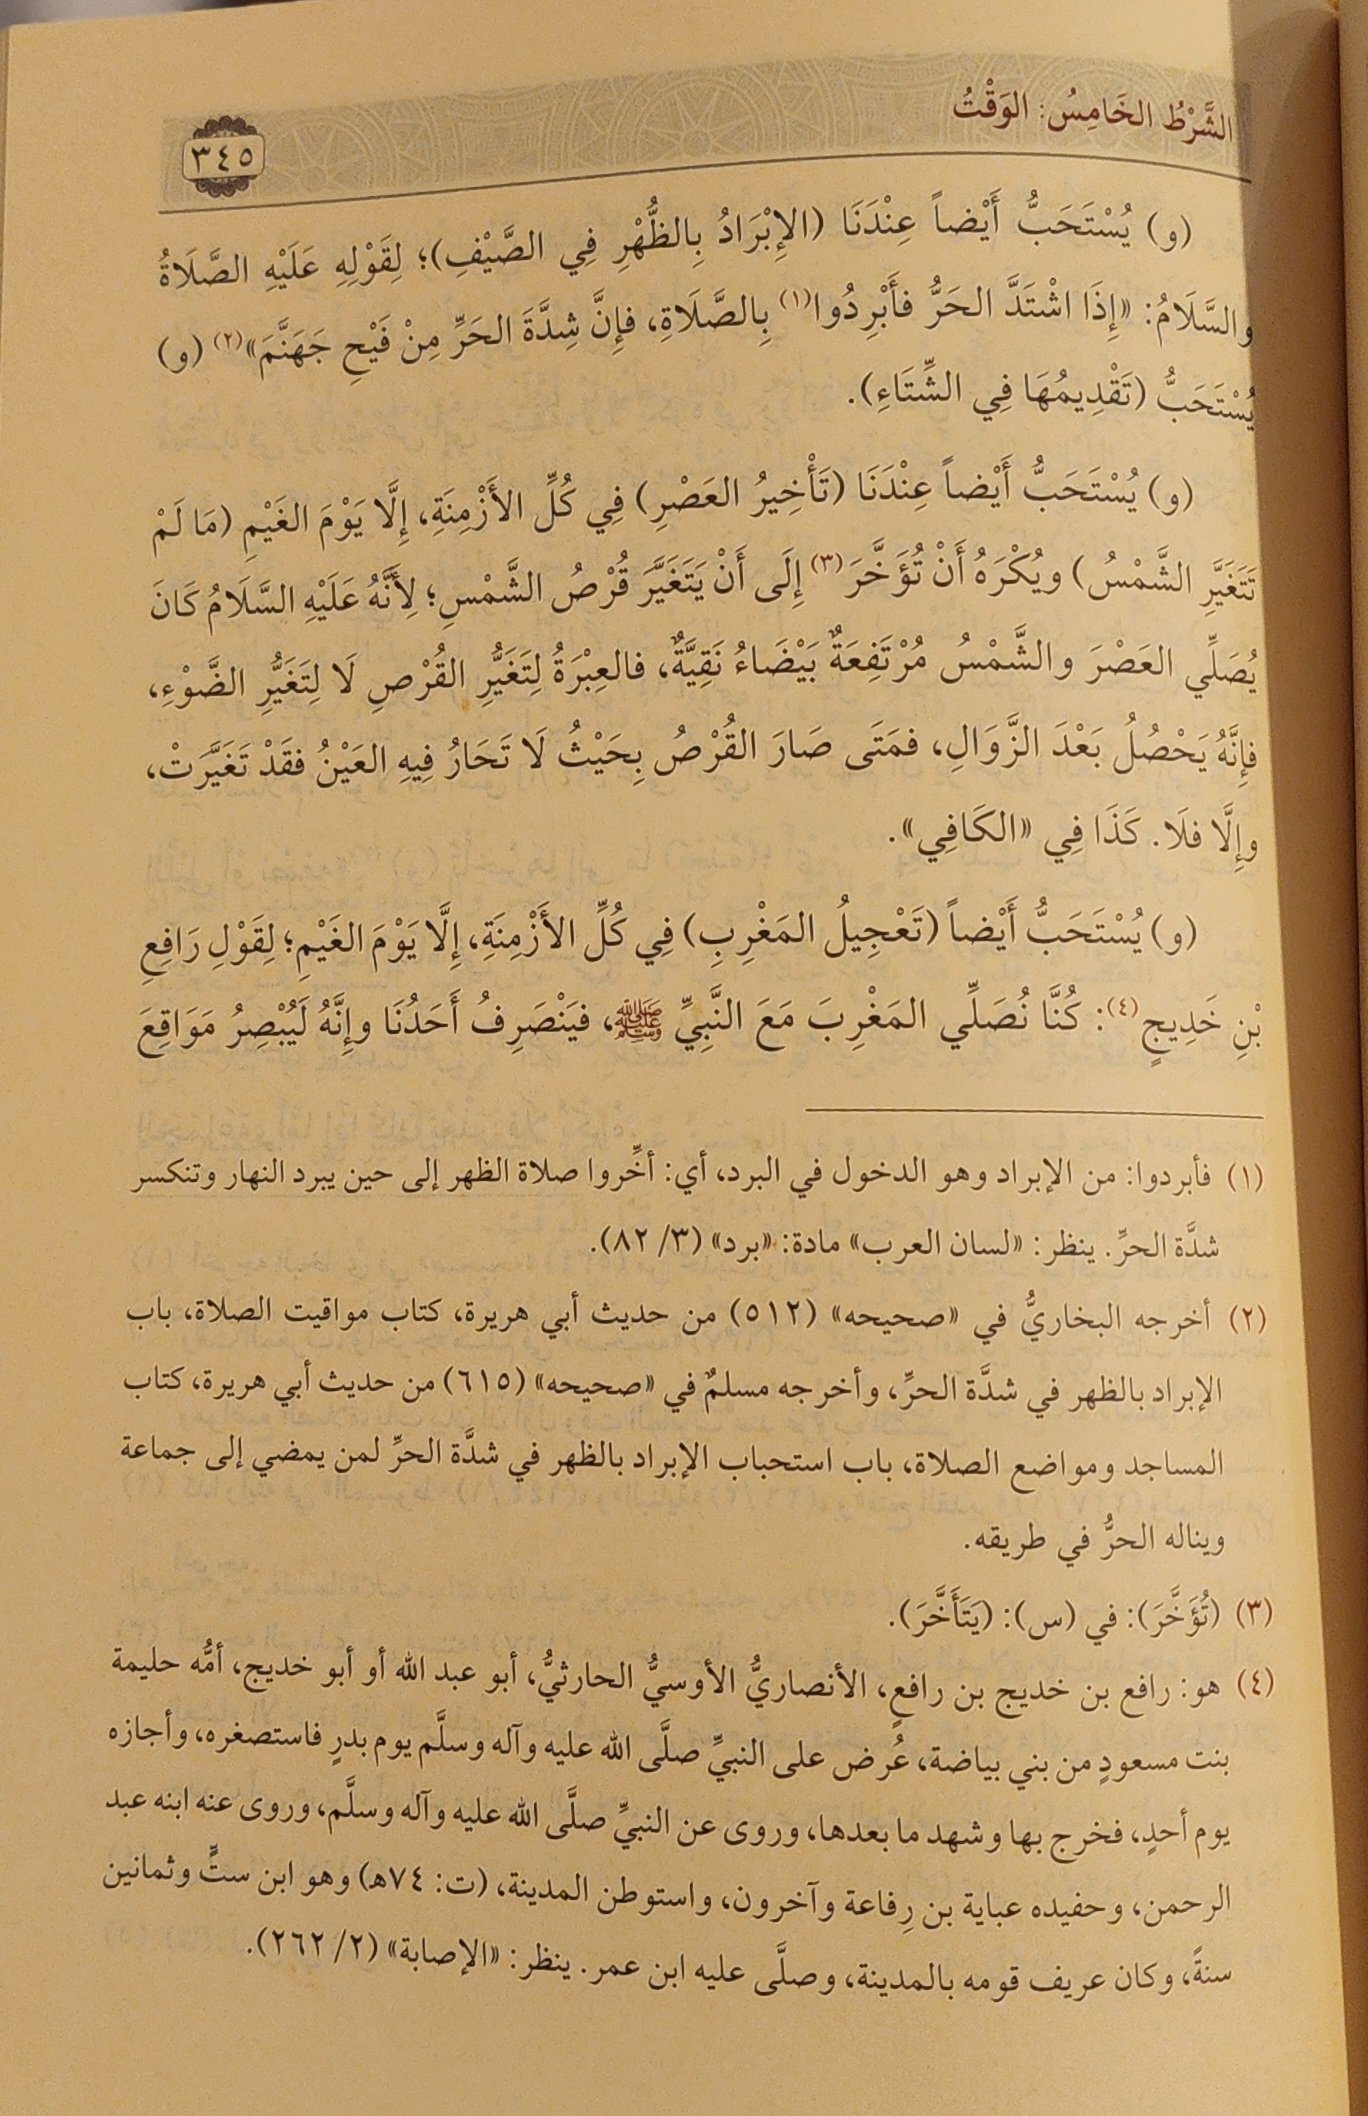 الشَّرْطُ الخَامِسُ: الوَقْتُ
٣٤٥
(و) يُسْتَحَبُّ أَيْضاً عِنْدَنَا (الإِبْرَادُ بِالظُّهْرِ فِي الصَّيْفِ)؛ لِقَوْلِهِ عَلَيْهِ الصَّلَاةُ
والسَّلَامُ: «إِذَا اشْتَدَّ الحَرُّ فأَبْرِدُوا(١) بِالصَّلَاةِ، فإِنَّ شِدَّةَ الحَرِّ مِنْ فَيْحِ جَهَنَّمَ»(٢) (و)
يُسْتَحَبُّ (تَقْدِيمُهَا فِي الشِّتَاءِ).
(و) يُسْتَحَبُّ أَيْضاً عِنْدَنَا (تَأْخِيرُ العَصْرِ) فِي كُلِّ الأَزْمِنَةِ، إِلَّا يَوْمَ الغَيْمِ (مَا لَمْ
تَتَغَيَّرِ الشَّمْسُ) ويُكْرَهُ أَنْ تُؤَخَّرَ(٣) إِلَى أَنْ يَتَغَيَّرَ قُرْصُ الشَّمْسِ؛ لِأَنَّهُ عَلَيْهِ السَّلَامُ كَانَ
يُصَلِّي العَصْرَ والشَّمْسُ مُرْتَفِعَةٌ بَيْضَاءُ نَقِيَّةٌ، فالعِبْرَةُ لِتَغَيُّرِ القُرْصِ لَا لِتَغَيُّرِ الضَّوْءِ،
فإِنَّهُ يَحْصُلُ بَعْدَ الزَّوَالِ، فمَتَى صَارَ القُرْصُ بِحَيْثُ لَا تَحَارُ فِيهِ العَيْنُ فقَدْ تَغَيَّرَتْ،
وإِلَّا فلَا. كَذَا فِي «الكَافِي».
(و) يُسْتَحَبُّ أَيْضاً (تَعْجِيلُ المَغْرِبِ) فِي كُلِّ الأَزْمِنَةِ، إِلَّا يَوْمَ الغَيْمِ؛ لِقَوْلِ رَافِعِ
بْنِ خَدِيجٍ(٤): كُنَّا نُصَلِّي المَغْرِبَ مَعَ النَّبِيِّ ﷺ، فيَنْصَرِفُ أَحَدُنَا وإِنَّهُ لَيُبْصِرُ مَوَاقِعَ
(١) فأبردوا: من الإبراد وهو الدخول في البرد، أي: أخِّروا صلاة الظهر إلى حين يبرد النهار وتنكسر
شدَّة الحرِّ. ينظر: «لسان العرب» مادة: «برد» (٣/ ٨٢).
(٢) أخرجه البخاريُّ في «صحيحه» (٥١٢) من حديث أبي هريرة، كتاب مواقيت الصلاة، باب
الإبراد بالظهر في شدَّة الحرِّ، وأخرجه مسلمٌ في «صحيحه» (٦١٥) من حديث أبي هريرة، كتاب
المساجد ومواضع الصلاة، باب استحباب الإبراد بالظهر في شدَّة الحرِّ لمن يمضي إلى جماعة
ويناله الحرُّ في طريقه.
(٣) (تُؤَخَّرَ): في (س): (يَتَأَخَّرَ).
(٤) هو: رافع بن خديج بن رافعٍ، الأنصاريُّ الأوسيُّ الحارثيُّ، أبو عبد الله أو أبو خديج، أمُّه حليمة
بنت مسعودٍ من بني بياضة، عُرض على النبيِّ صلَّى الله عليه وآله وسلَّم يوم بدرٍ فاستصغره، وأجازه
يوم أحدٍ، فخرج بها وشهد ما بعدها، وروى عن النبيِّ صلَّى الله عليه وآله وسلَّم، وروى عنه ابنه عبد
الرحمن، وحفيده عباية بن رِفاعة وآخرون، واستوطن المدينة، (ت: ٧٤هـ) وهو ابن ستٍّ وثمانين
سنةً، وكان عريف قومه بالمدينة، وصلَّى عليه ابن عمر. ينظر: «الإصابة» (٢/ ٢٦٢).